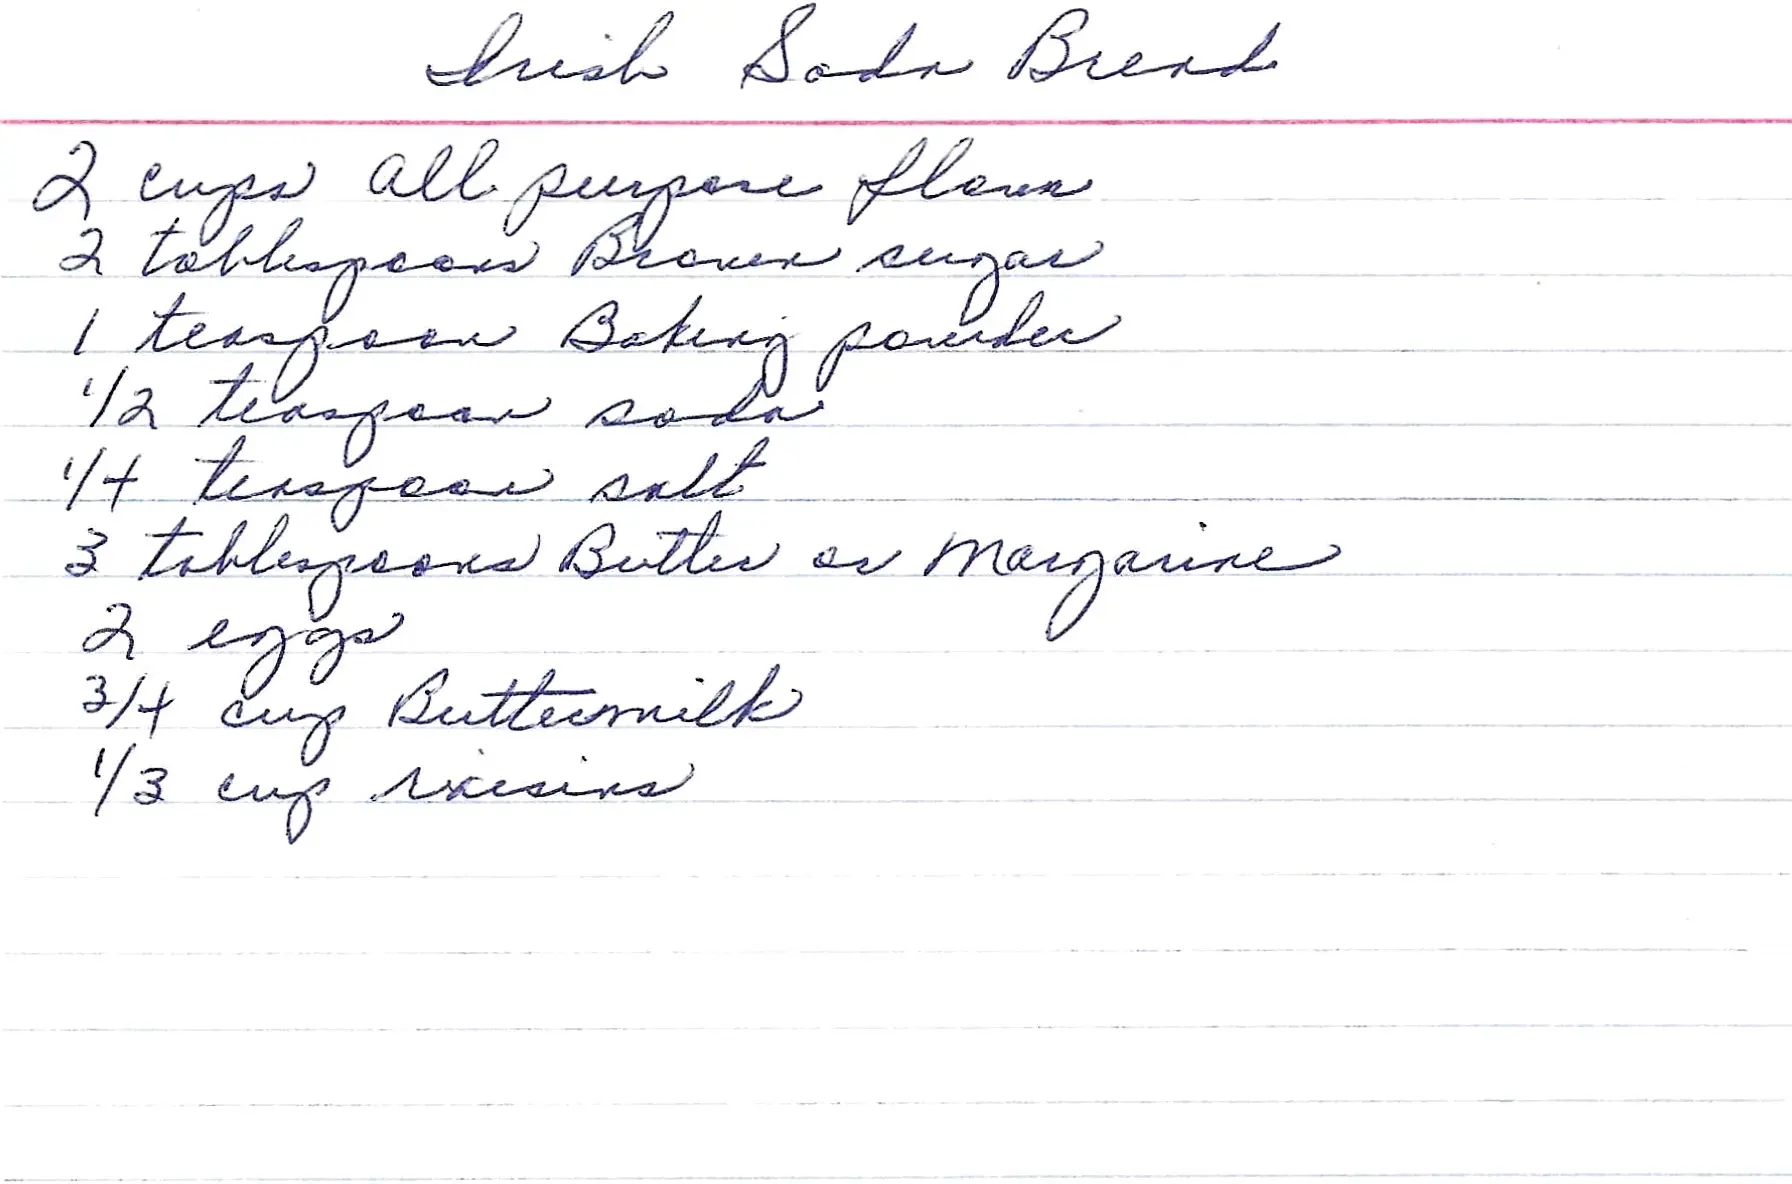 Irish Soda Bread
2 cups all purpose flour
2 tablespoons Brown sugar
1 teaspoon Baking powder
1/2 teaspoon soda
1/4 teaspoon salt
3 tablespoons Butter or Margarine
2 eggs
3/4 cup Buttermilk
1/3 cup raisins